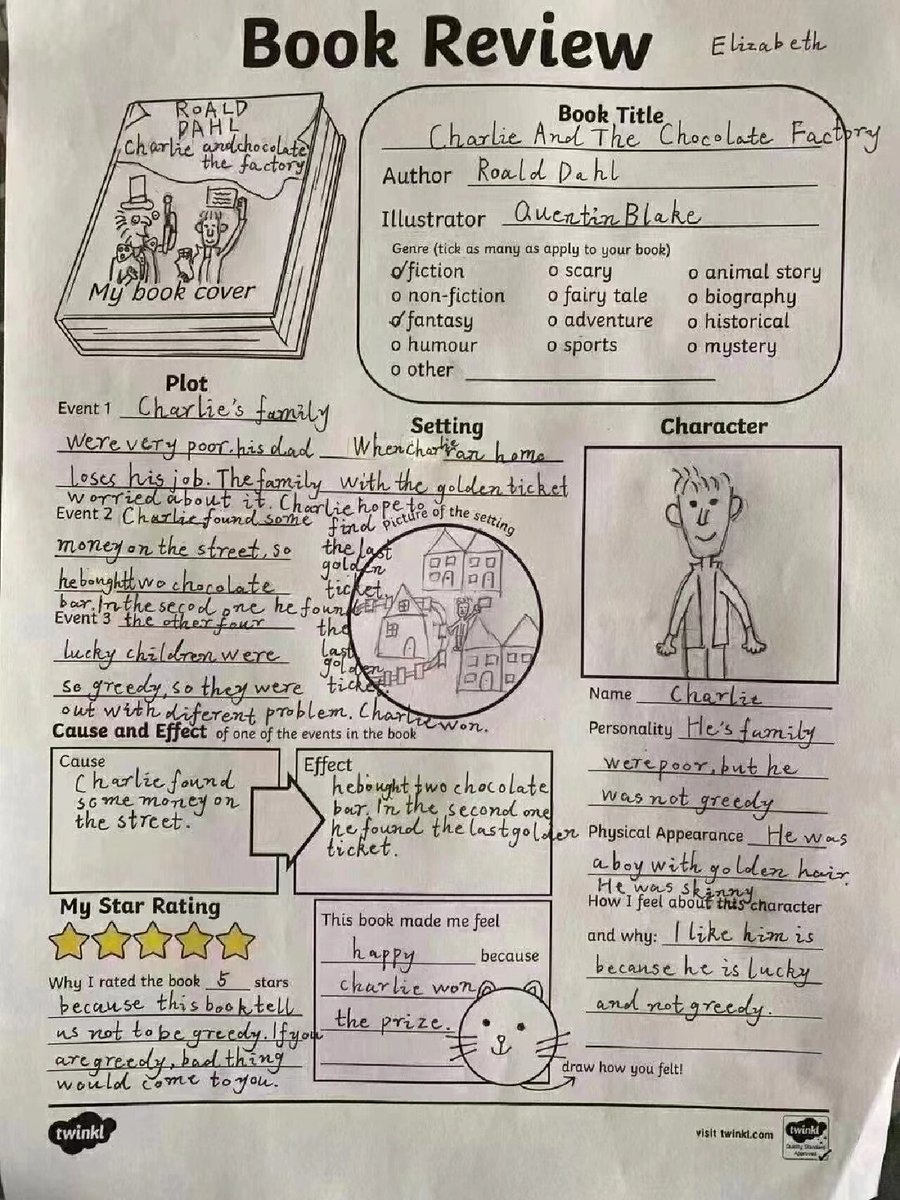 Book Review
Elizabeth
ROALD
DAHL
Charlie and chocolate
the factory
My book cover
Book Title
Charlie And The Chocolate Factory
Author Roald Dahl
Illustrator Quentin Blake
Genre (tick as many as apply to your book)
fiction
o scary
o animal story
o non-fiction
o fairy tale
o biography
fantasy
o adventure
o historical
o humour
o sports
o mystery
o other
Plot
Event 1 Charlie's family
were very poor. his dad
loses his job. The family
worried about it. Charlie hope to
find
the last
golden
ticket.
Event 2 Charlie found some
money on the street, so
he bought two chocolate
bar. In the secod one he found
the
last
golden
ticket.
Event 3 the other four
lucky children were
so greedy, so they were
out with diferent problem. Charlie won.
Setting
When charlie ran home
with the golden ticket
Picture of the setting
Character
Name Charlie
Personality He's family
were poor, but he
was not greedy
Physical Appearance He was
a boy with golden hair.
He was skinny
How I feel about this character
and why: I like him is
because he is lucky
and not greedy.
Cause and Effect of one of the events in the book
Cause
Charlie found
some money on
the street.
Effect
he bought two chocolate
bar. In the second one
he found the last golden
ticket.
My Star Rating
Why I rated the book 5 stars
because this book tell
us not to be greedy. If you
are greedy, bad thing
would come to you.
This book made me feel
happy because
charlie won
the prize.
draw how you felt!
twinkl
visit twinkl.com
twinkl
Quality Standard
Approved